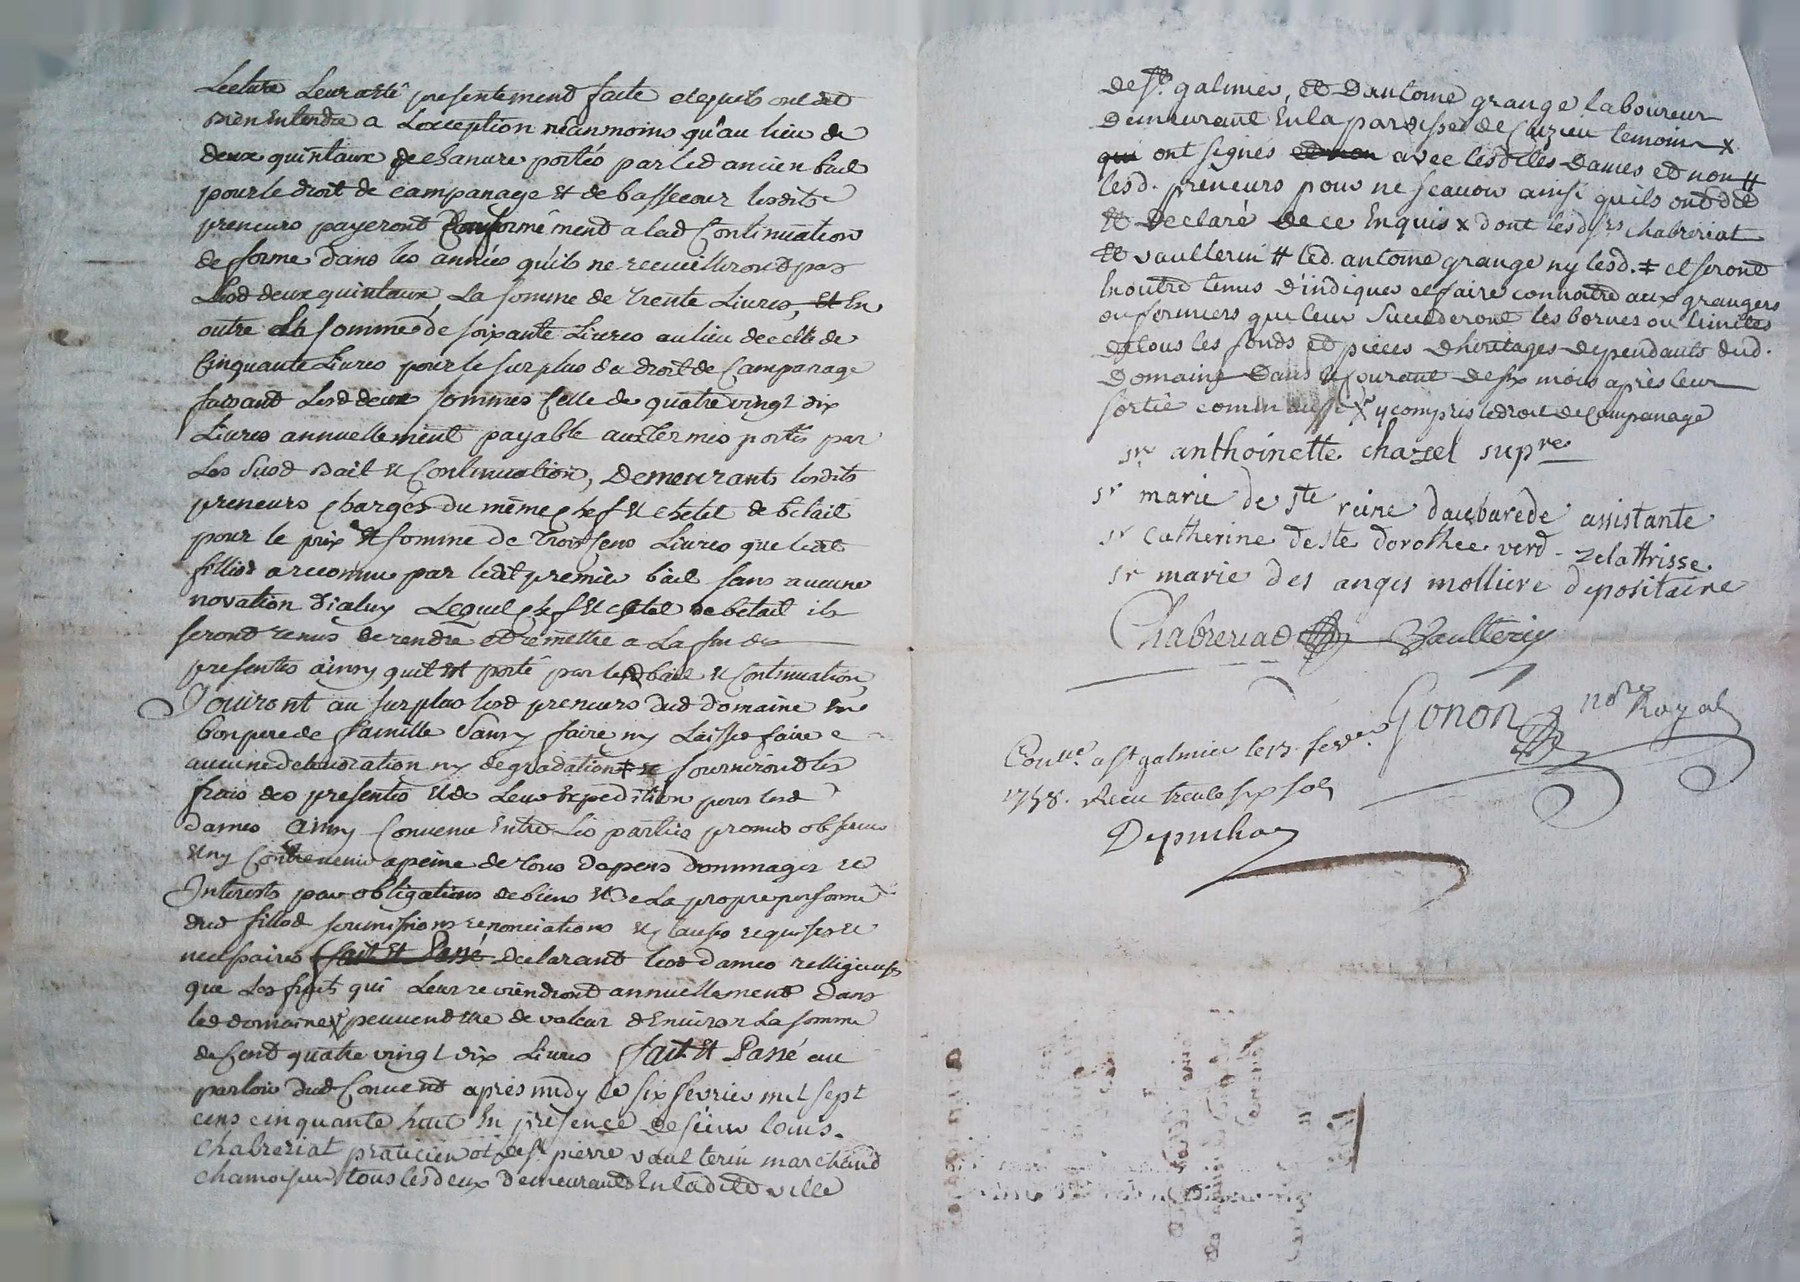 Lecture Leur atté presentement faite et quils ont dit
Bien Entendre a Lexception néanmoins qu'au lieu de
deux quintaux de chanvre portés par led ancien bail
pour le droit de campanage et de bassecour lesdits
preneurs payeront Conformément a lad Continuation
de forme dans les années qu'ils ne recueilleront pas
Lesd deux quintaux, La somme de trente Livres, et En
outre La somme de soixante Livres au lieu de celle de
Cinquante Livres pour le surplus du droit de Campanage
faisant Lesd deux sommes Celle de quatre vingt dix
Livres annuellement payable aux termes portés par
Les Susd Bail et Continuation, Demeurants lesdits
preneurs Chargés du même Chef et chetel de bétail
pour le prix et somme de trois Cens Livres que ledit
filliod a reconnu par ledit premier bail sans aucune
novation d'iceluy Lequel Chef et chetel de bétail ils
seront tenus de rendre et remettre a La fin des
presentes ainsy quil est porté par led bail et Continuation
Jouiront au surplus lesd preneurs dud domaine En
bon pere de famille Sans y faire ny Laisser faire
aucune deterioration ny degradation ‡ et fourniront les
frais des presentes et de Leur Expedition pour lesd
dames ainsy Convenu Entre Les parties promis observer
et ny Contrevenir a peine de tous depens dommages et
Interests par obligations de biens et de La propre personne
dud filliod soumissions renonciations et Clauses requises et
necessaires fait et Passé declarant lesd dames relligieuses
que Les fruits qui Leur reviendront annuellement dans
led domaine X peuvent Etre de valeur d'Environ La somme
de Cent quatre vingt dix Livres fait et Passé au
parloir dud Convent après midy le six fevrier mil sept
cens cinquante huit En presence de sieur louis
Chabreriat praticien et de sr pierre vaulterin marchand
chamoiseur tous les deux Demeurants En la dite ville
de st galmier, et d'antoine grange laboureur
Demeurant En la paroisse de Cuzieu temoins x
qui ont signés et non avec lesdites Dames et non #
lesd. preneurs pour ne scavoir ainsi quils ont dit
et Declaré de ce Enquis x dont lesd srs chabreriat
et vaulterin # led. antoine grange ny lesd. ‡ et seront
En outre tenus d'indiquer et faire connoitre aux grangers
ou fermiers qui leur Succederont les bornes ou limites
de tous les fonds et pieces d'heritages dependants dud.
Domaine dans le courant de six mois après leur
sortie comme aussi X y compris le droit de campanage
sr anthoinette chazel supre
sr marie de ste reine daubarede assistante
sr Catherine de ste dorothée verd - zelattrisse
sr marie des anges molliere depositaire
Chabreriat Vaulterin
Gonon nore Royal
Conlle. a st galmier le 13. fevrer
1758. Recu trente six sols
Depuchay